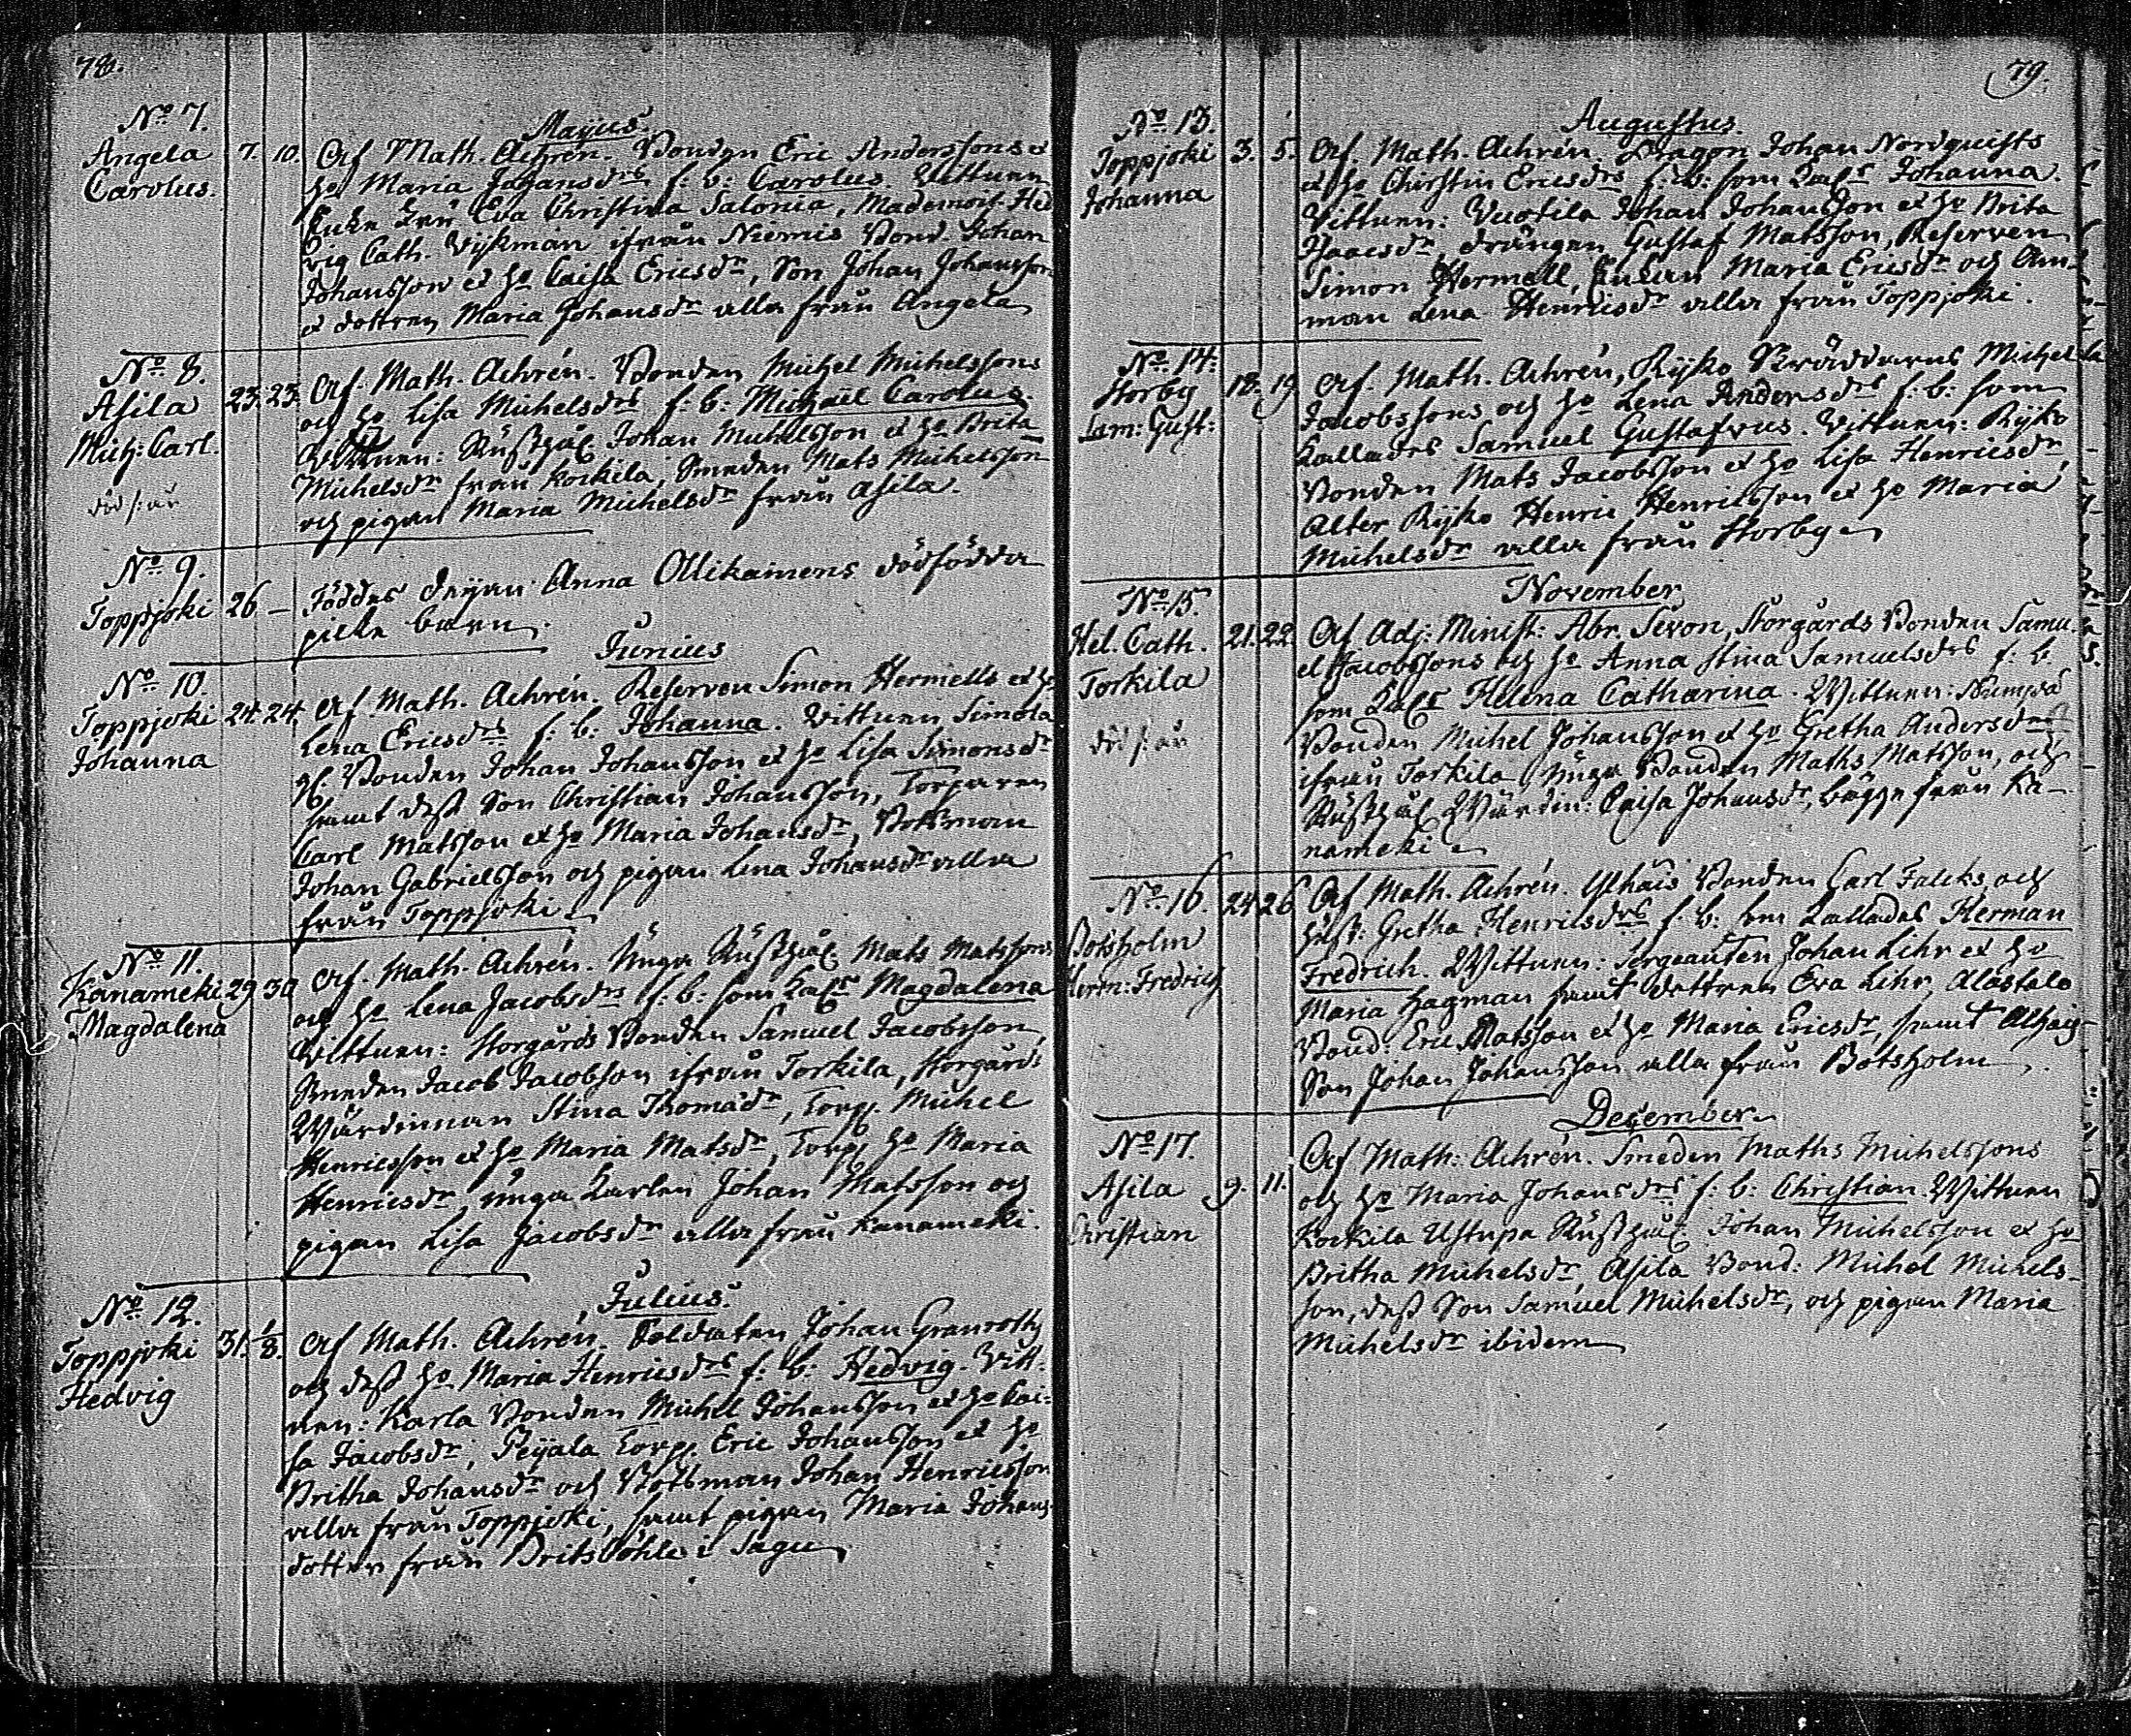 78.
No 7.
Majus.
Angela 7. 10. Af Math. Achrén. Bonden Eric Anderssons et
Carolus. ho Maria Johansdrs f: b: Carolus. Wittnen
Enke Fru Eva Christina Salonia, Mademois. Hed
vig Cath. Vijkman ifrån Niemis Bond. Johan
Johansson et ho Caisa Ericsdr, Son Johan Johansson
et dottren Maria Johansdr alla från Angela
No 8.
Asila 23. 23. Af Math. Achrén. Bonden Michel Michelssons
Mich: Carl. och ho Lisa Michelsdrs f: b: Michaël Carolus.
Wittnen: Rusthål. Johan Michelsson et ho Brita
Michelsdr från Kockila, Smeden Mats Michelsson
död s: år
och pigan Maria Michelsdr från Asila.
No 9.
Toppjoki 26 — Föddes Anna Ollikainens dödfödda
piltebarn.
Junius
No 10.
Toppjoki 24. 24. Af Math. Achrén. Reserven Simon Hermells et ho
Johanna Lena Ericsdrs f: b: Johanna. Wittnen Simola
gl. Bonden Johan Johansson et ho Lisa Simonsdr
samt dess Son Christian Johansson, Torparen
Carl Matsson et ho Maria Johansdr, Båtsman
Johan Gabrielsson och pigan Lena Johansdr alla
från Toppjoki
No 11.
Kanameki 29 30 Af Math. Achrén. Unga Rusthål. Mats Matssons
Magdalena och ho Lena Jacobsdrs f: b: som kals Magdalena
Wittnen: Storgårds Bonden Samuel Jacobsson,
Smeden Jacob Jacobson ifrån Torkila, Storgårds
Wärdinnan Stina Thomædr, Torp. Michel
Henricsson et ho Maria Matsdr, Torp. ho Maria
Henricsdr, unga Karlen Johan Matsson och
pigan Lisa Jacobsdr alla från Kanameki.
Julius.
No 12.
Toppjoki 31. 1/8. Af Math. Achrén. Soldaten Johan Granroths
Hedvig och dess ho Maria Henricsdrs f: b: Hedvig. Witt-
nen: Karla Bonden Michel Johansson et ho Cai-
sa Jacobsdr, Peijala Torp. Eric Johansson et ho
Britha Johansdr och Båtsman Johan Henricsson
alla från Toppjoki, samt pigan Maria Johans
dotter från Britsböhle i Sagu
79.
Augustus.
No 13.
Toppjoki 3. 5. Af. Math. Achrén. Dragon Johan Nordquists
Johanna et ho Christin Ericsdrs f: b: som kals Johanna.
Wittnen: Vuotila Johan Johansson et ho Brita
Isacsdr, drängen Gustaf Matsson, Reserven
Simon Hermell, Enkan Maria Ericsdr och Am-
man Lena Henricsdr alla från Toppjoki.
No 14:
Storby 18. 19. Af. Math. Achrén, Ryko Skräddarens Michel
Sam: Gust: Jacobssons och ho Lena Andersdrs f: b: som
kallades Samuel Gustafvus. Wittnen: Ryko
Bonden Mats Jacobsson et ho Lisa Henricsdr,
Alter Ryko Henric Henricsson et ho Maria
Michelsdr alla från Storby
November
No 15.
Hel. Cath. 21. 22. Af Adj: Minist: Abr. Sevon, Storgårds Bonden Samu-
Torkila el Jacobssons och ho Anna Stina Samuelsdrs f: b.
som kals Helena Catharina. Wittnen:
död s: år
Bonden Michel Johansson et ho Gretha Andersdr
ifrån Torkila, unga Bonden Maths Matsson, och
Rusthål Wärdin: Caisa Johansdr, bägge från Ka-
nameki
No 16. 24 26 Af Math. Achrén. Ylhäis Bonden Carl Falcks, och
Botsholm hust: Gretha Henricsdrs f: b: som kallades Herman
Herm: Fredrich Fredrich. Wittnen: Sergeanten Johan Lihr et ho
Maria Hagman samt dottren Eva Lihr, Alastalo
Bond: Eric Matsson et ho Maria Ericsdr, samt
Son Johan Johansson alla från Botsholm.
December
No 17.
Asila 9. 11. Af Math: Achrén. Smeden Maths Michelssons
Christian och ho Maria Johansdrs f: b: Christian. Wittnen
Kockila Ustupa Rusthål. Johan Michelsson et ho
Britha Michelsdr, Asila Bond: Michel Michels-
son, dess Son Samuel Michelsdr, och pigan Maria
Michelsdr ibidem